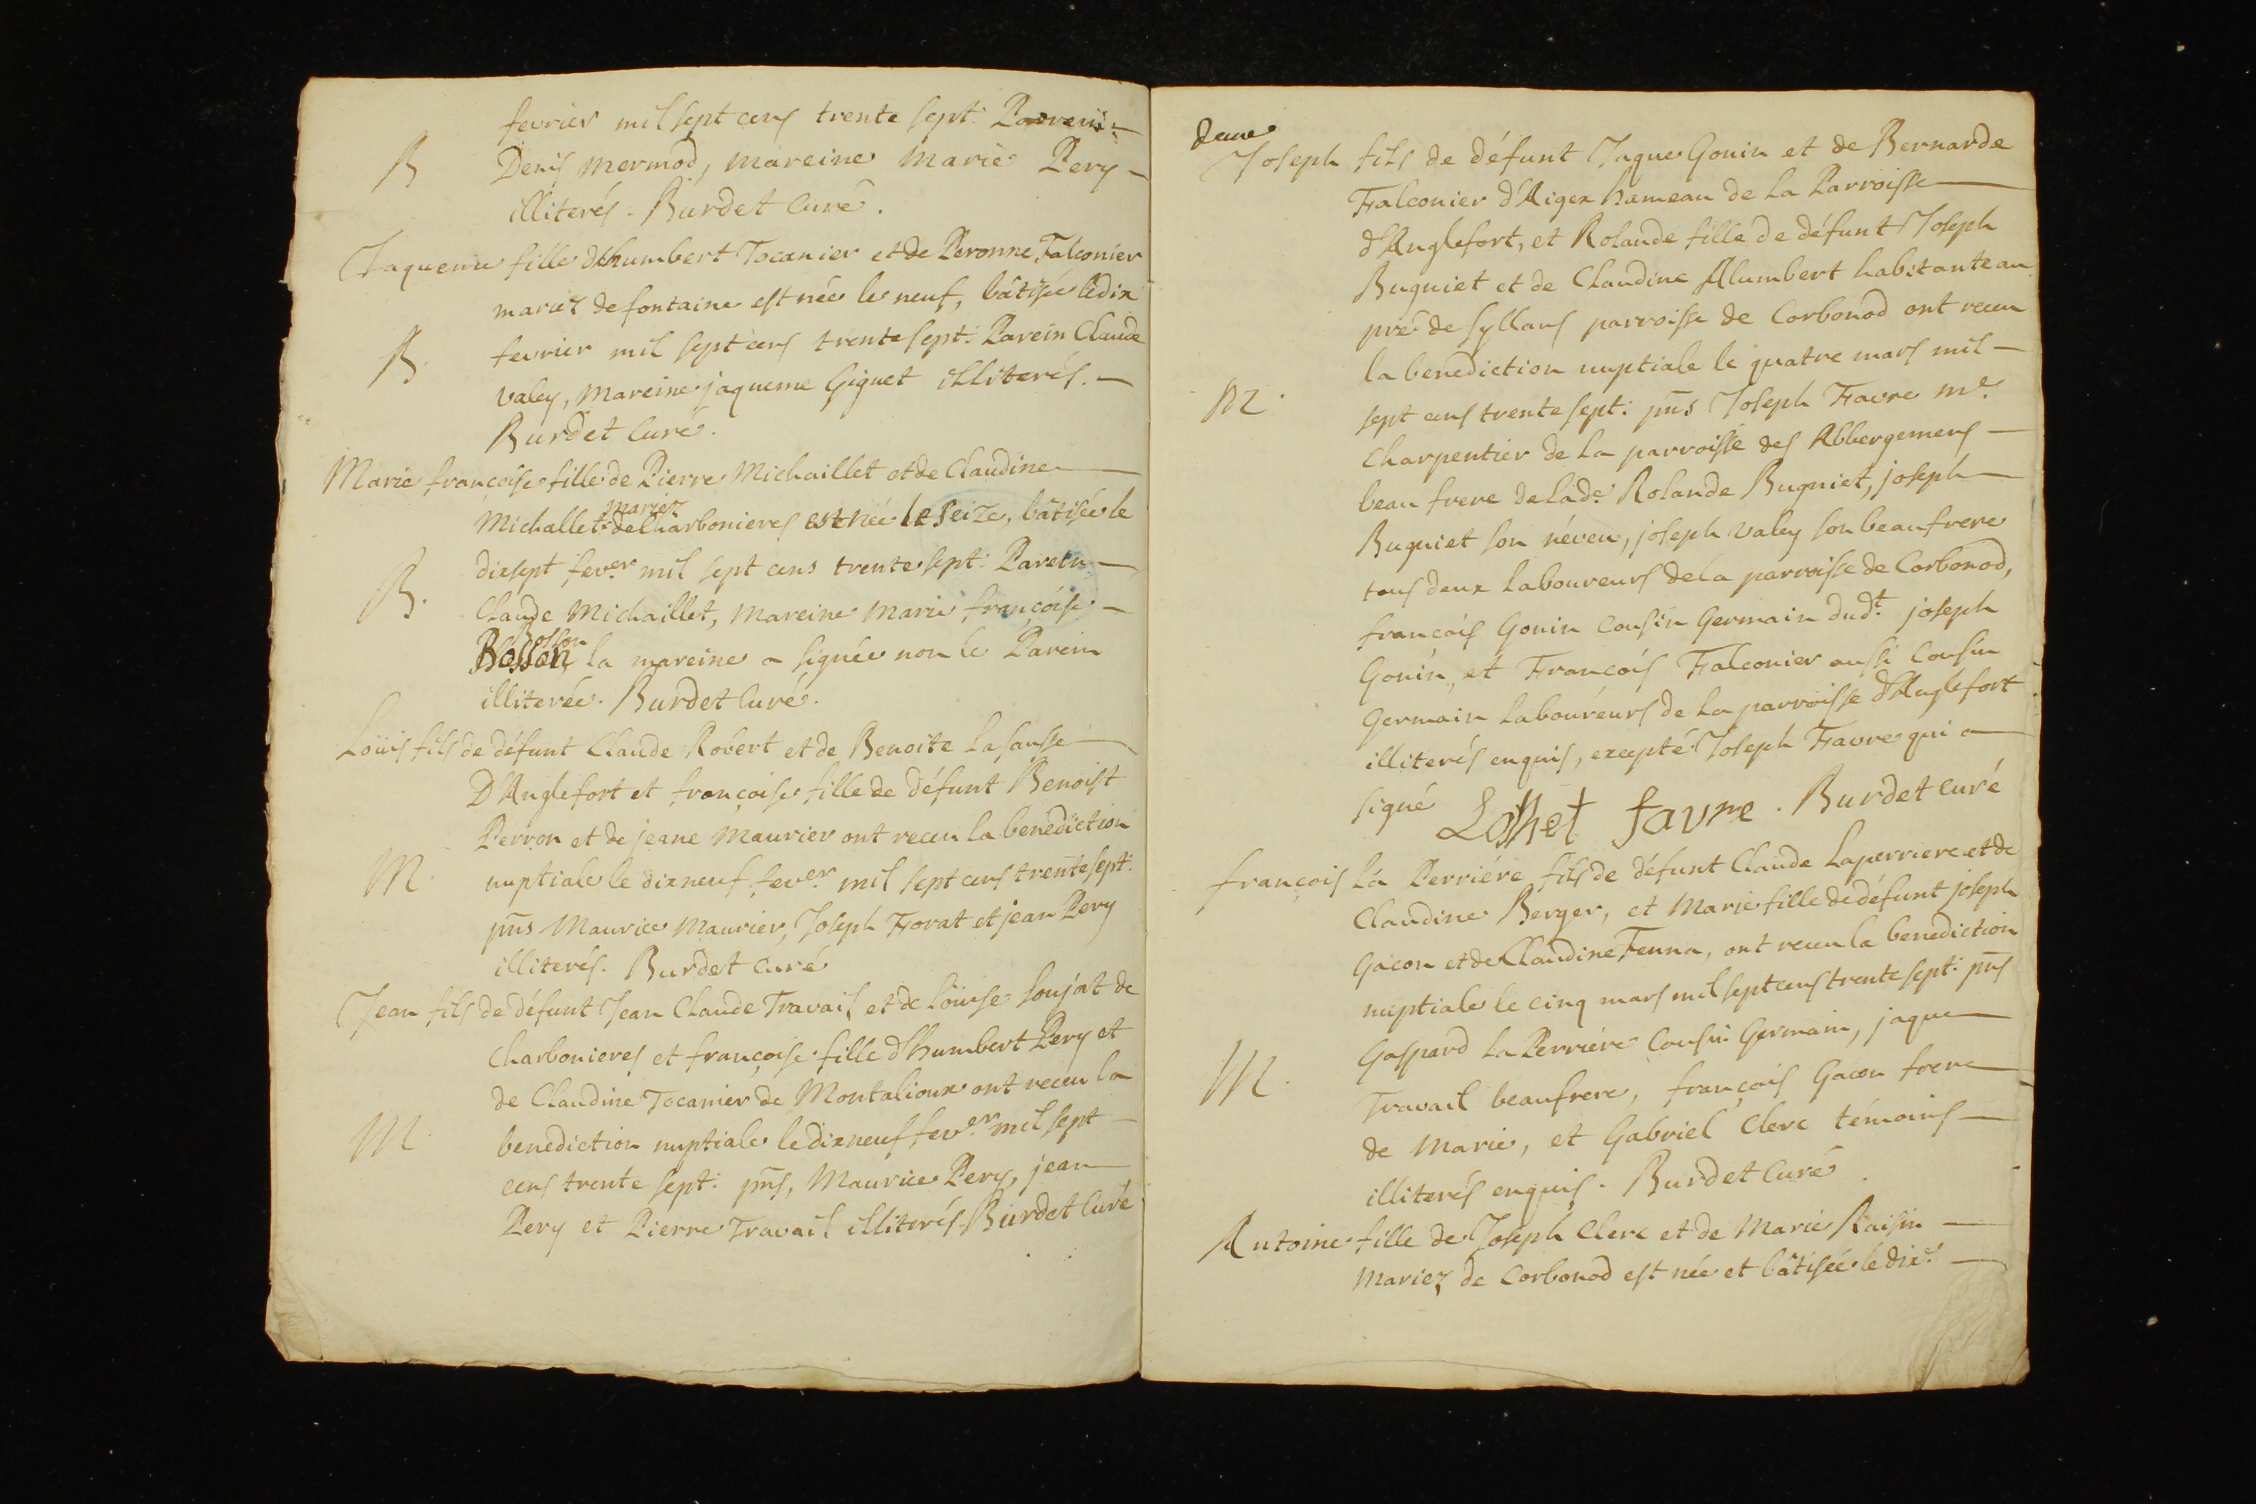 fevrier mil sept cens trente sept: Parrein
B Denis Mermod, mareine Marie Pery
illiterés. Burdet Curé.
Jaqueme fille dhumbert Tocanier et de Peronne Falconier
mariez de fontaine est née le neuf, bâtisée le dix
B fevrier mil sept cens trente sept: Parein Claude
valey, mareine jaqueme Giguet illiterés.
Burdet Curé.
Marie françoise fille de Pierre Michaillet et de Claudine
mariez
Michallet de Charbonieres est née le seize, bâtisée le
dixsept fever mil sept cens trente sept: Parein
B. Claude Michaillet, mareine marie françoise
Bosson
Bosson, la mareine a signée non le Parein
illiterée. Burdet Curé.
Loüis fils de défunt Claude Robert et de Benoite Lasausse
D'Anglefort et françoise fille de défunt Benoist
Perron et de jeane Maurier ont receu la benediction
M. nuptiale le dixneuf fever mil sept cens trente sept:
pns Maurice Maurier, Joseph Forat et jean Pery
illiterés. Burdet curé
Jean fils de défunt Jean Claude Travail et de loüise soujat de
Charbonieres et françoise fille d'humbert Pery et
de Claudine Tocanier de Montalioux ont receu la
M. benediction nuptiale le dixneuf fever mil sept
cens trente sept: pns, Maurice Pery, jean
Pery et Pierre Travail illiterés. Burdet Curé
deux
Joseph fils de défunt Jaque Gonin et de Bernarde
Falconier d'Aigex hameau de la Parroisse
d'Anglefort, et Rolande fille de défunt Joseph
Buquiet et de Claudine Alumbert habitante au
pré de Syllans parroisse de Corbonod ont receu
la benediction nuptiale le quatre mars mil
M. sept cens trente sept: pns Joseph Favre me.
Charpentier de la parroisse des Abbergemens
beau frere de lade. Rolande Buquiet, joseph
Buquiet son néveu, joseph valey son beaufrere
tous deux laboureurs de la parroisse de Corbonod,
françois Gonin cousin Germain dudt. joseph
Gonin, et François Falconier aussi cousin
Germain laboureurs de la parroisse d'Anglefort
illiterés enquis, excepté Joseph Favre qui a
signé favre. Burdet curé
françois La Perriére fils de défunt Claude Laperriere et de
Claudine Berger, et Marie fille de défunt joseph
Gacon et de Claudine Fenna, ont receu la benediction
nuptiale le cinq mars mil sept cens trente sept: pns
Gaspard la Perriére Cousin Germain, jaque
M. Travail beaufrere, françois Gacon frere
de marie, et Gabriel Clerc témoins
illiterés enquis. Burdet Curé
Antoine fille de Joseph Clerc et de Marie Raisin
mariez de Corbonod est née et bâtisée le dix